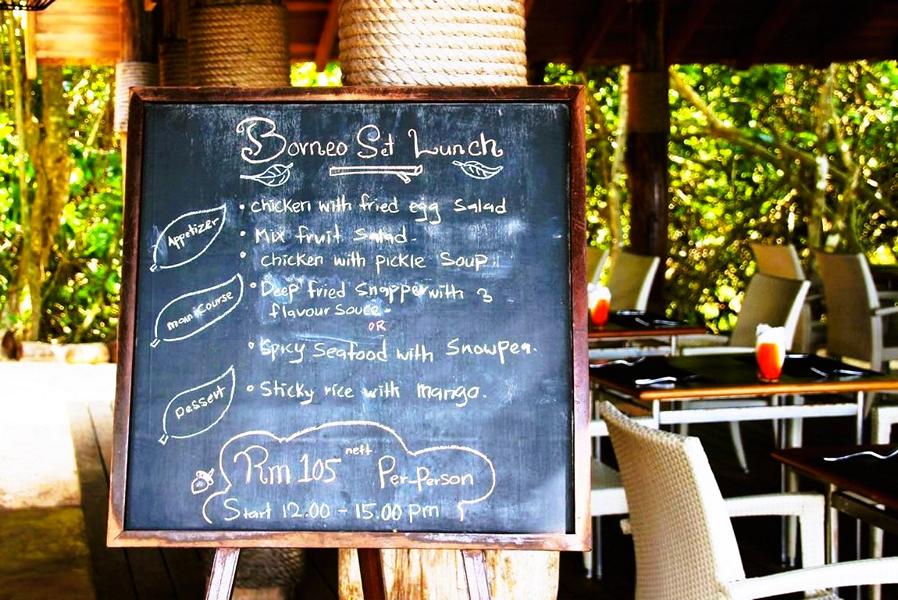 Borneo Set Lunch
Appetizer
• chicken with fried egg Salad
• Mix fruit Salad.
• chicken with pickle Soup
main course
• Deep fried Snapper with 3
flavour Sauce
OR
• Spicy Seafood with Snowpea.
Dessert
• Sticky rice with mango.
Rm 105 nett Per-Person
Start 12.00 - 15.00 pm